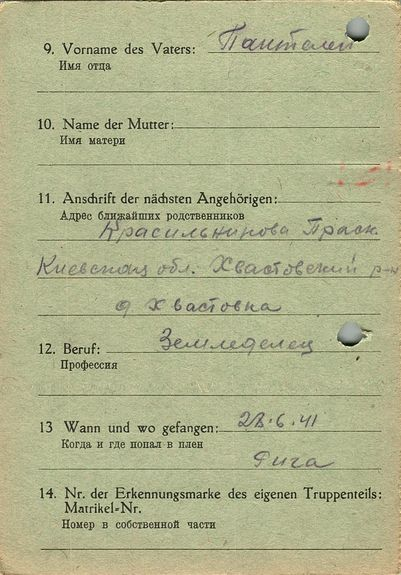 9. Vorname des Vaters: Пантелей
Имя отца
10. Name der Mutter:
Имя матери
11. Anschrift der nächsten Angehörigen:
Адрес ближайших родственников
Красильникова Праск.
Киевская обл. Хвастовский р-н
д Хвастовка
12. Beruf: Земледелец
Профессия
13 Wann und wo gefangen: 28.6.41
Когда и где попал в плен
Рига
14. Nr. der Erkennungsmarke des eigenen Truppenteils:
Matrikel-Nr.
Номер в собственной части